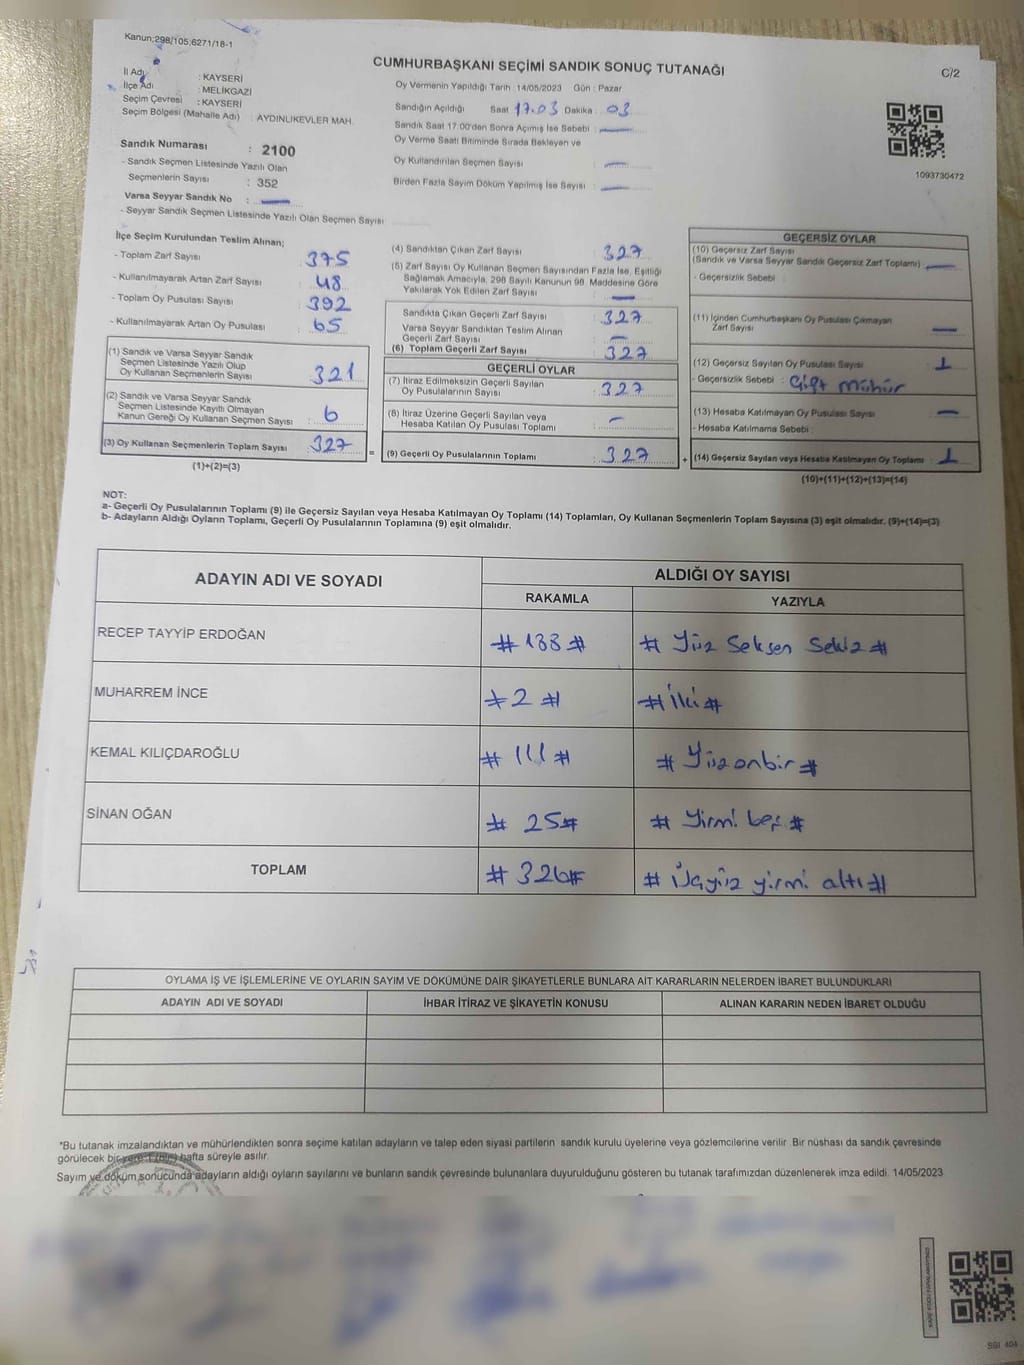 Kanun:298/105;6271/18-1
CUMHURBAŞKANI SEÇİMİ SANDIK SONUÇ TUTANAĞI
C/2
İl Adı : KAYSERİ
İlçe Adı : MELİKGAZİ
Seçim Çevresi : KAYSERİ
Seçim Bölgesi (Mahalle Adı) : AYDINLIKEVLER MAH.
Sandık Numarası : 2100
- Sandık Seçmen Listesinde Yazılı Olan
Seçmenlerin Sayısı : 352
Varsa Seyyar Sandık No :
- Seyyar Sandık Seçmen Listesinde Yazılı Olan Seçmen Sayısı
Oy Vermenin Yapıldığı Tarih : 14/05/2023 Gün : Pazar
Sandığın Açıldığı Saat 17.03 Dakika : 03
Sandık Saat 17:00'den Sonra Açılmış İse Sebebi :
Oy Verme Saati Bitiminde Sırada Bekleyen ve
Oy Kullandırılan Seçmen Sayısı :
Birden Fazla Sayım Döküm Yapılmış İse Sayısı :
1093730472
İlçe Seçim Kurulundan Teslim Alınan;
- Toplam Zarf Sayısı : 375
- Kullanılmayarak Artan Zarf Sayısı : 48
- Toplam Oy Pusulası Sayısı : 392
- Kullanılmayarak Artan Oy Pusulası : 65
(1) Sandık ve Varsa Seyyar Sandık
Seçmen Listesinde Yazılı Olup
Oy Kullanan Seçmenlerin Sayısı : 321
(2) Sandık ve Varsa Seyyar Sandık
Seçmen Listesinde Kayıtlı Olmayan
Kanun Gereği Oy Kullanan Seçmen Sayısı : 6
(3) Oy Kullanan Seçmenlerin Toplam Sayısı : 327
(1)+(2)=(3)
(4) Sandıktan Çıkan Zarf Sayısı : 327
(5) Zarf Sayısı Oy Kullanan Seçmen Sayısından Fazla İse, Eşitliği
Sağlamak Amacıyla, 298 Sayılı Kanunun 98. Maddesine Göre
Yakılarak Yok Edilen Zarf Sayısı :
Sandıkta Çıkan Geçerli Zarf Sayısı : 327
Varsa Seyyar Sandıktan Teslim Alınan
Geçerli Zarf Sayısı : –
(6) Toplam Geçerli Zarf Sayısı : 327
GEÇERLİ OYLAR
(7) İtiraz Edilmeksizin Geçerli Sayılan
Oy Pusulalarının Sayısı : 327
(8) İtiraz Üzerine Geçerli Sayılan veya
Hesaba Katılan Oy Pusulası Toplamı : –
= (9) Geçerli Oy Pusulalarının Toplamı : 327
GEÇERSİZ OYLAR
(10) Geçersiz Zarf Sayısı
(Sandık ve Varsa Seyyar Sandık Geçersiz Zarf Toplamı) :
- Geçersizlik Sebebi :
(11) İçinden Cumhurbaşkanı Oy Pusulası Çıkmayan
Zarf Sayısı :
(12) Geçersiz Sayılan Oy Pusulası Sayısı : 1
- Geçersizlik Sebebi : Çift Mühür
(13) Hesaba Katılmayan Oy Pusulası Sayısı : –
- Hesaba Katılmama Sebebi :
+ (14) Geçersiz Sayılan veya Hesaba Katılmayan Oy Toplamı : 1
(10)+(11)+(12)+(13)=(14)
NOT:
a- Geçerli Oy Pusulalarının Toplamı (9) ile Geçersiz Sayılan veya Hesaba Katılmayan Oy Toplamı (14) Toplamları, Oy Kullanan Seçmenlerin Toplam Sayısına (3) eşit olmalıdır. (9)+(14)=(3)
b- Adayların Aldığı Oyların Toplamı, Geçerli Oy Pusulalarının Toplamına (9) eşit olmalıdır.
ADAYIN ADI VE SOYADI ALDIĞI OY SAYISI
RAKAMLA YAZIYLA
RECEP TAYYİP ERDOĞAN # 188 # # Yüz Seksen Sekiz #
MUHARREM İNCE # 2 # # İki #
KEMAL KILIÇDAROĞLU # 111 # # Yüzonbir #
SİNAN OĞAN # 25 # # Yirmi beş #
TOPLAM # 326 # # Üçyüz yirmi altı #
OYLAMA İŞ VE İŞLEMLERİNE VE OYLARIN SAYIM VE DÖKÜMÜNE DAİR ŞİKAYETLERLE BUNLARA AİT KARARLARIN NELERDEN İBARET BULUNDUKLARI
ADAYIN ADI VE SOYADI İHBAR İTİRAZ VE ŞİKAYETİN KONUSU ALINAN KARARIN NEDEN İBARET OLDUĞU
*Bu tutanak imzalandıktan ve mühürlendikten sonra seçime katılan adayların ve talep eden siyasi partilerin sandık kurulu üyelerine veya gözlemcilerine verilir. Bir nüshası da sandık çevresinde
görülecek bir yere 1 (bir) hafta süreyle asılır.
Sayım ve döküm sonucunda adayların aldığı oyların sayılarını ve bunların sandık çevresinde bulunanlara duyurulduğunu gösteren bu tutanak tarafımızdan düzenlenerek imza edildi. 14/05/2023
SBI 404